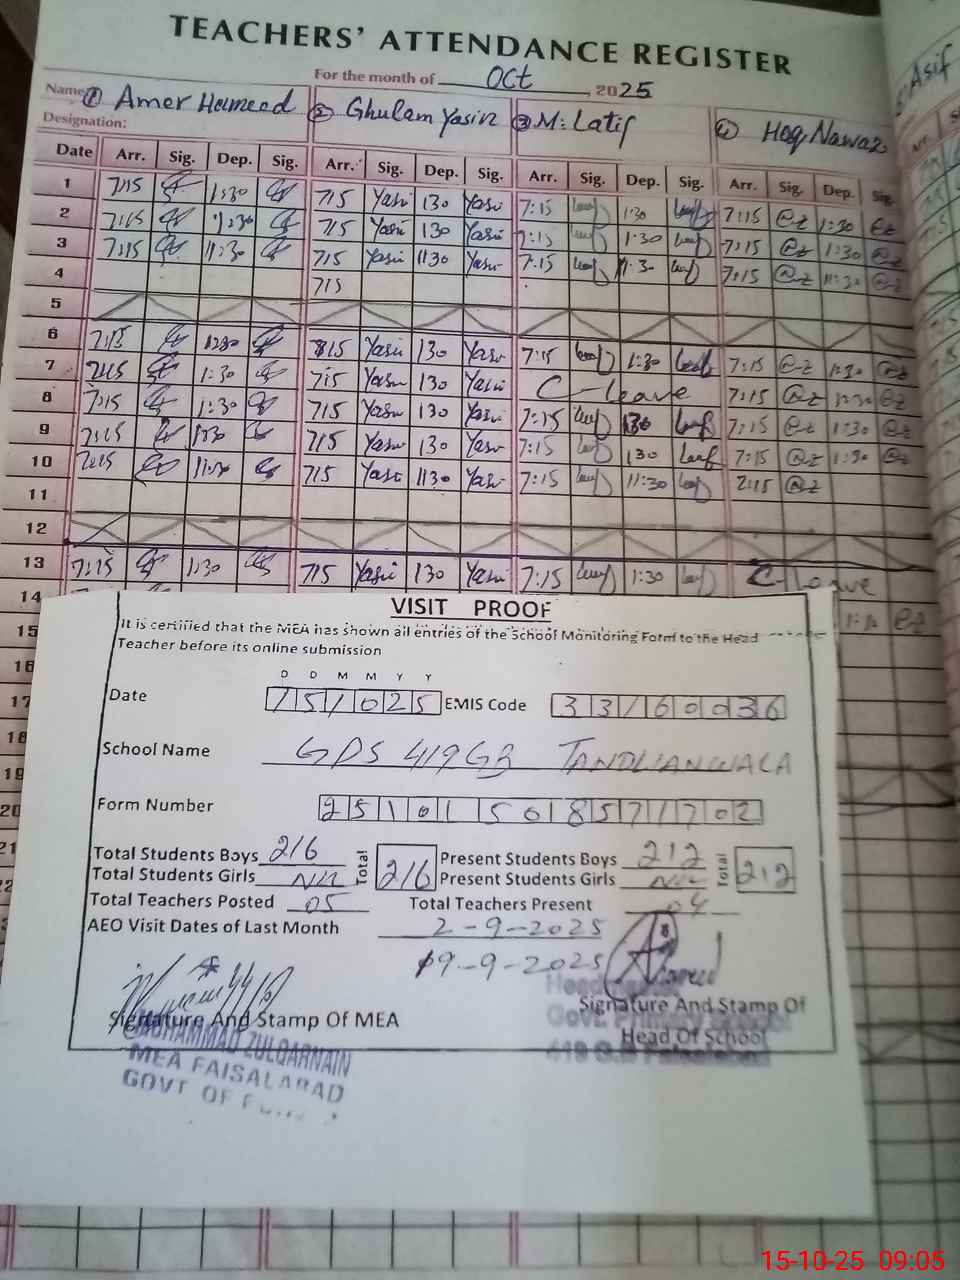 TEACHERS' ATTENDANCE REGISTER
For the month of Oct 2025
Name: ① Amer Hameed ② Ghulam Yasin ③ M: Latif ④ Haq Nawaz Asif
Designation:
Date Arr. Sig. Dep. Sig. Arr. Sig. Dep. Sig. Arr. Sig. Dep. Sig. Arr. Sig. Dep. Sig.
1 7:15 1:30 715 Yasin 130 Yasin 7:15 1:30 7:15 1:30
2 7:15 1:30 715 Yasin 130 Yasin 7:15 1:30 7:15 1:30
3 7:15 11:30 715 Yasin 1130 Yasin 7:15 11:30 7:15 11:30
4 715
5
6 7:15 1230 815 Yasin 130 Yasin 7:15 1:30 7:15 1:30
7 7:15 1:30 715 Yasin 130 Yasin C-leave 7:15
8 7:15 1:30 715 Yasin 130 Yasin 7:15 130 7:15 1:30
9 7:15 1:30 715 Yasin 130 Yasin 7:15 130 7:15 1:30
10 7:15 11:30 715 Yasin 1130 Yasin 7:15 11:30 7:15
11
12
13 7:15 1:30 715 Yasin 130 Yasin 7:15 1:30 C-leave
14
15
16
17
18
19
20
21
VISIT PROOF
It is certified that the MEA has shown all entries of the School Monitoring Form to the Head
Teacher before its online submission
D D M M Y Y
Date 151025 EMIS Code 33160036
School Name GPS 419GB TANDLIANWALA
Form Number 251015018571702
Total Students Boys 216 Total 216 Present Students Boys 212 Total 212
Total Students Girls Nil Present Students Girls Nil
Total Teachers Posted 05 Total Teachers Present 04
AEO Visit Dates of Last Month 2-9-2025
19-9-2025
Signature And Stamp Of MEA Signature And Stamp Of
Head Of School
MUHAMMAD ZULQARNAIN
MEA FAISALABAD
GOVT OF
Headmaster
Govt.
419 G.B Faisalabad
15-10-25 09:05